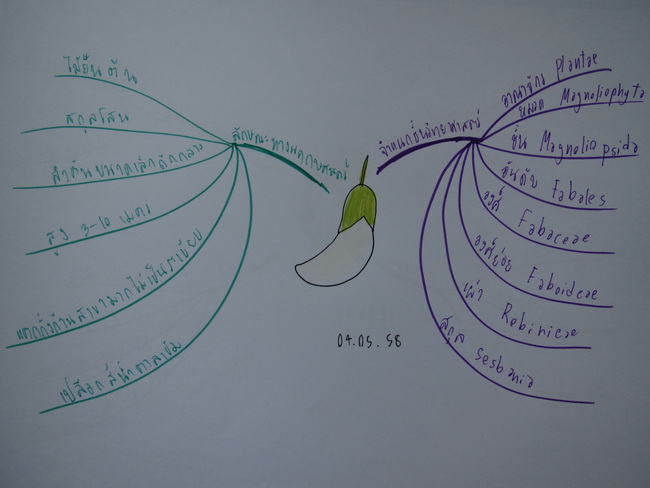 ลักษณะทางพฤกษศาสตร์
ไม้ยืนต้น
สกุลโสน
ลำต้นขนาดเล็กถึงกลาง
สูง 3-10 เมตร
แตกกิ่งก้านสาขามากไม่เป็นระเบียบ
เปลือกสีน้ำตาลอม
จำแนกชั้นวิทยาศาสตร์
อาณาจักร Plantae
หมวด Magnoliophyta
ชั้น Magnoliopsida
อันดับ Fabales
วงศ์ Fabaceae
วงศ์ย่อย Faboideae
เผ่า Robinieae
สกุล Sesbania
04.05.58